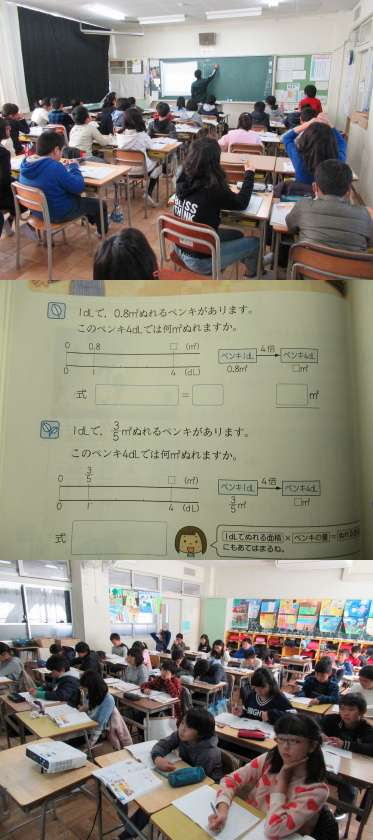 BLESS
THINK
1dLで，0.8㎡ぬれるペンキがあります。
このペンキ4dLでは何㎡ぬれますか。
0 0.8 □ (㎡)
0 1 4 (dL)
ペンキ1dL 4倍 ペンキ4dL
0.8㎡ □㎡
式 = ㎡
1dLで，3/5㎡ぬれるペンキがあります。
このペンキ4dLでは何㎡ぬれますか。
0 3/5 □ (㎡)
0 1 4 (dL)
ペンキ1dL 4倍 ペンキ4dL
3/5㎡ □㎡
式
1dLでぬれる面積 × ペンキの量 = ぬれる
にもあてはまるね。